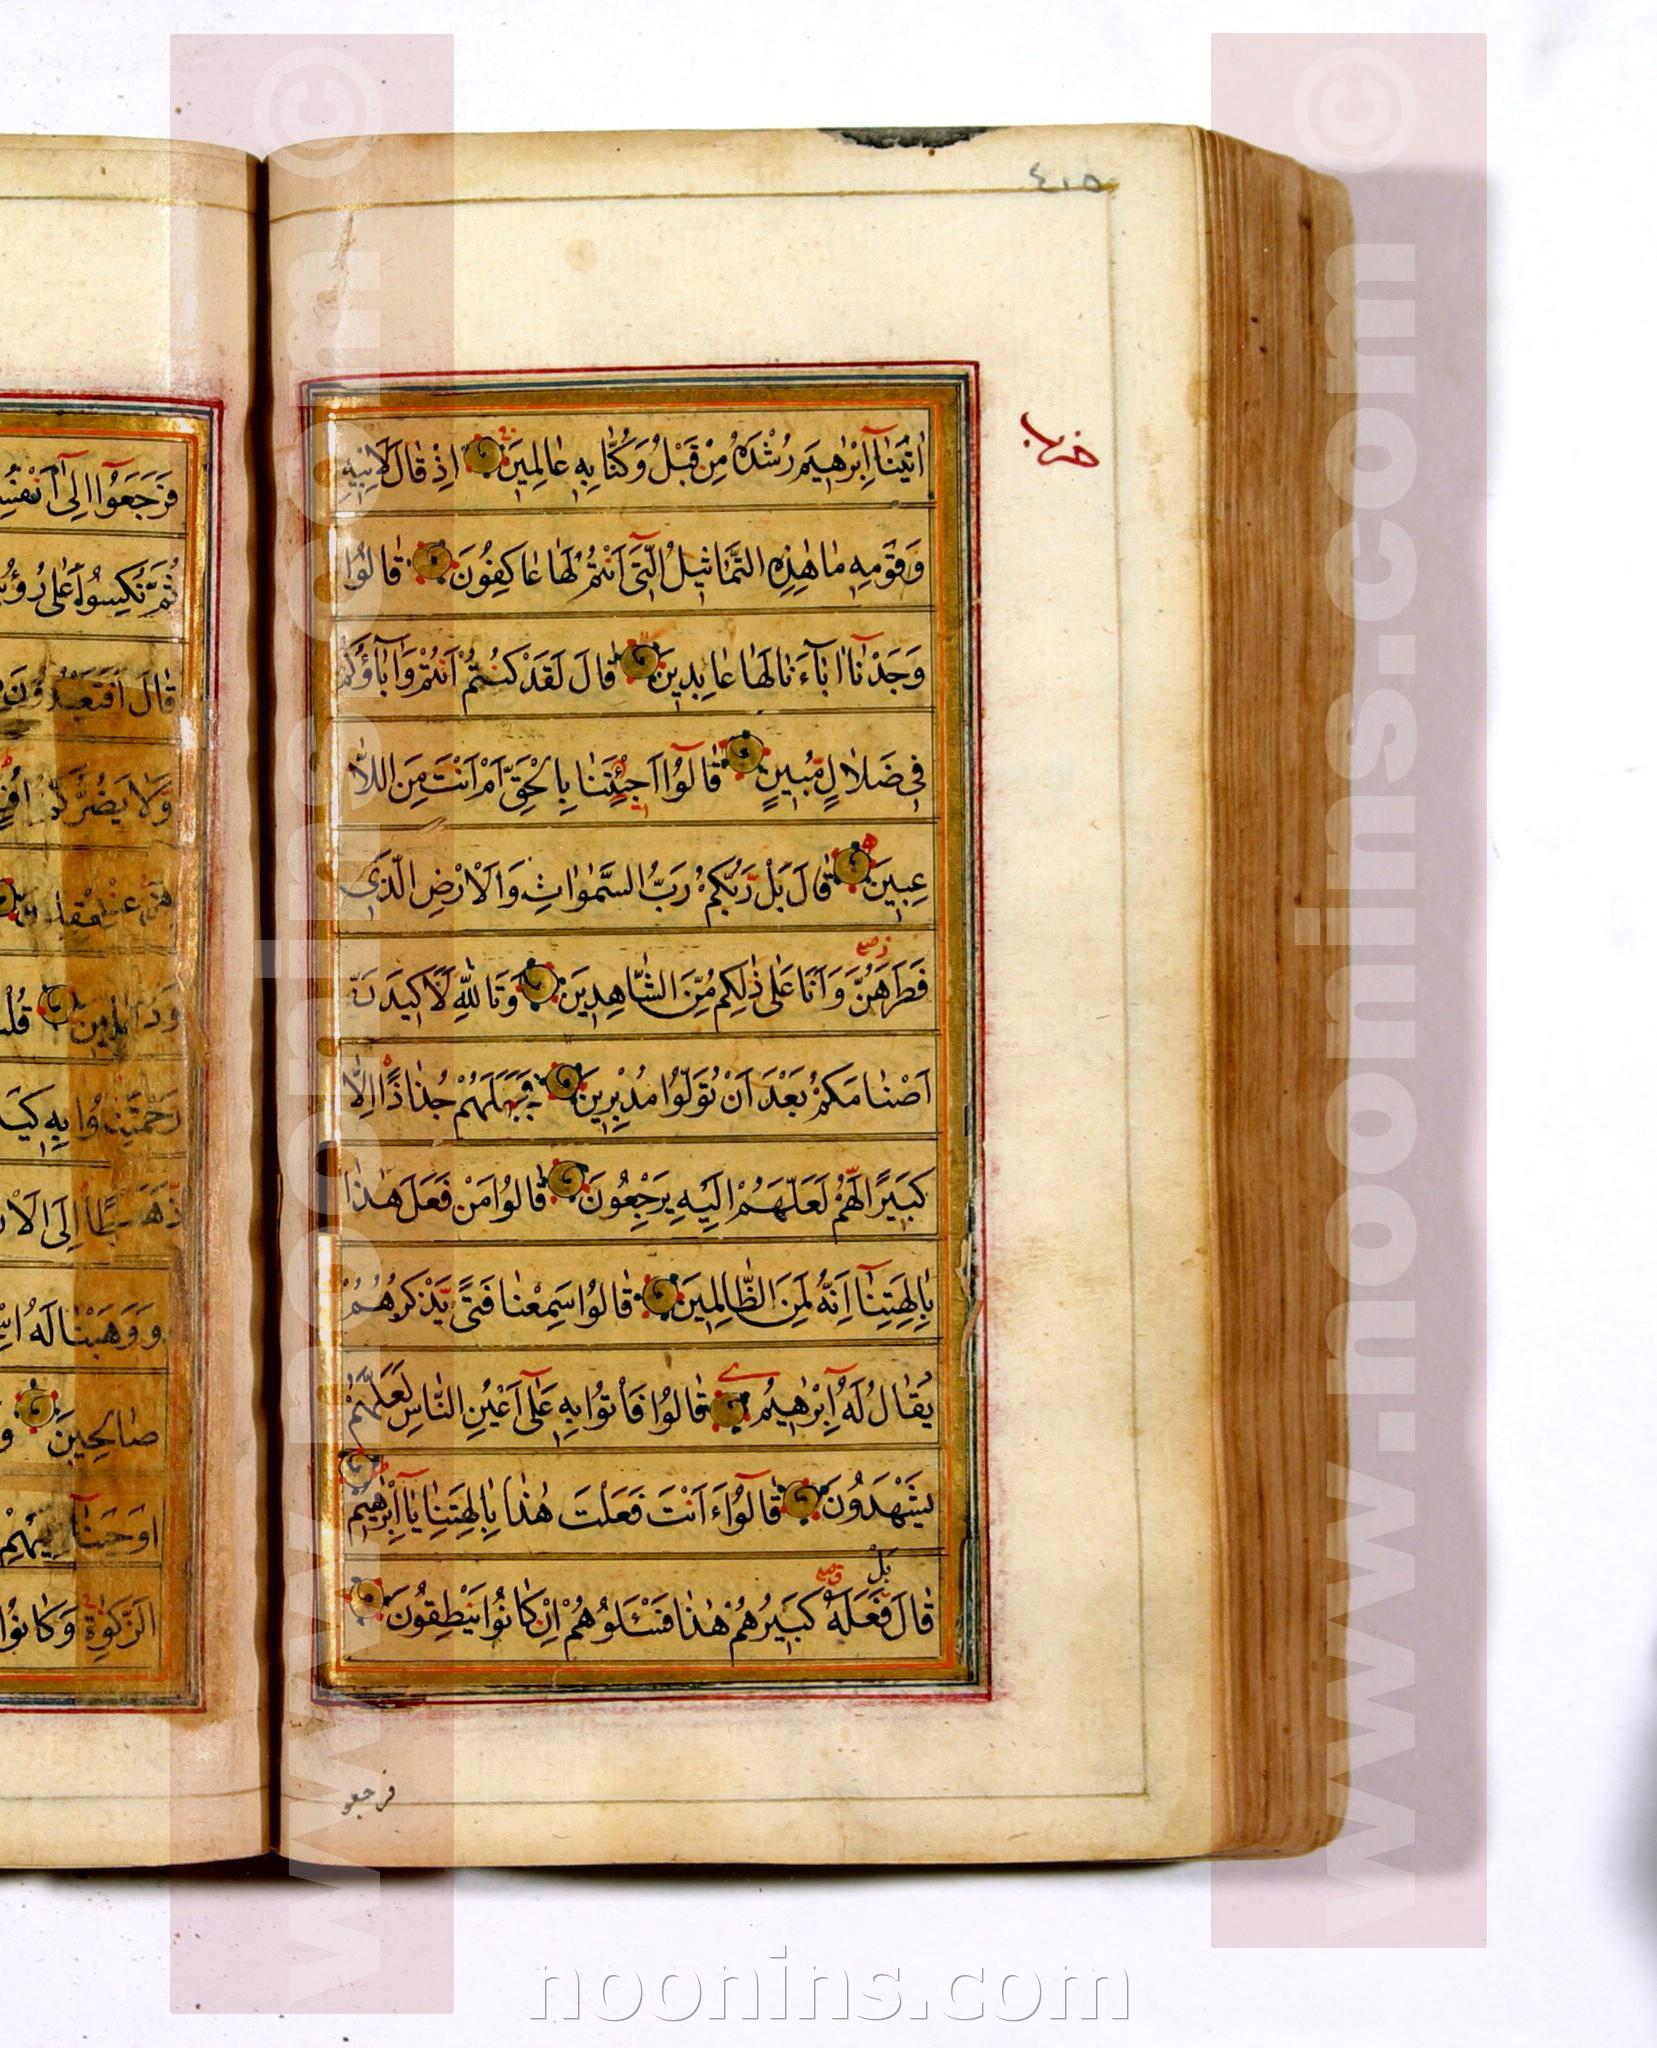 ٤١٥
حزب
اٰتَيْنَآ اِبْرٰهِيمَ رُشْدَهُ مِنْ قَبْلُ وَكُنَّا بِهِ عَالِمِينَ اِذْ قَالَ لِاَبِيهِ
وَقَوْمِهِ مَا هٰذِهِ التَّمَاثِيلُ الَّتِي اَنْتُمْ لَهَا عَاكِفُونَ قَالُوا
وَجَدْنَا اٰبَآءَنَا لَهَا عَابِدِينَ قَالَ لَقَدْ كُنْتُمْ اَنْتُمْ وَاٰبَآؤُكُمْ
فِي ضَلَالٍ مُّبِينٍ قَالُوآ اَجِئْتَنَا بِالْحَقِّ اَمْ اَنْتَ مِنَ اللَّا
عِبِينَ قَالَ بَلْ رَبُّكُمْ رَبُّ السَّمٰوَاتِ وَالْاَرْضِ الَّذِي
فَطَرَهُنَّ وَاَنَا عَلٰى ذٰلِكُمْ مِّنَ الشَّاهِدِينَ وَتَاللّٰهِ لَاَكِيدَنَّ
اَصْنَامَكُمْ بَعْدَ اَنْ تُوَلُّوا مُدْبِرِينَ فَجَعَلَهُمْ جُذَاذًا اِلَّا
كَبِيرًا لَّهُمْ لَعَلَّهُمْ اِلَيْهِ يَرْجِعُونَ قَالُوا مَنْ فَعَلَ هٰذَا
بِاٰلِهَتِنَآ اِنَّهُ لَمِنَ الظَّالِمِينَ قَالُوا سَمِعْنَا فَتًى يَّذْكُرُهُمْ
يُقَالُ لَهُ آِبْرٰهِيمُ قَالُوا فَاْتُوا بِهِ عَلٰٓى اَعْيُنِ النَّاسِ لَعَلَّهُمْ
يَشْهَدُونَ قَالُوآ ءَاَنْتَ فَعَلْتَ هٰذَا بِاٰلِهَتِنَا يَآ اِبْرٰهِيمُ
بَلْ
قَالَ فَعَلَهُ كَبِيرُهُمْ هٰذَا فَسْئَلُوهُمْ اِنْ كَانُوا يَنْطِقُونَ
فرجعو
فَرَجَعُوآ اِلٰٓى اَنْفُسِ
ثُمَّ نُكِسُوا عَلٰى رُؤُسِ
قَالَ اَفَتَعْبُدُونَ
وَلَا يَضُرُّكُمْ اُفٍّ
قُلْ
بِهِ كَيْدً
اِلَى الْاَرْ
وَوَهَبْنَا لَهُ اِسْ
صَالِحِينَ وَ
اَوْحَيْنَآ اِلَيْهِمْ
الزَّكٰوةِ وَكَانُوا
www.noonins.com ©
www.noonins.com ©
noonins.com